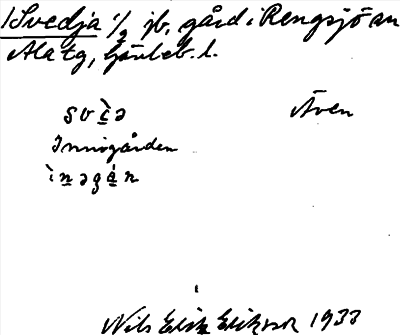 1 Svedja 1/2 jb, gård i Rengsjö sn
Ala tg, Gävleb. l.
Även
Innigården
Nils Erik Eriksson 1933